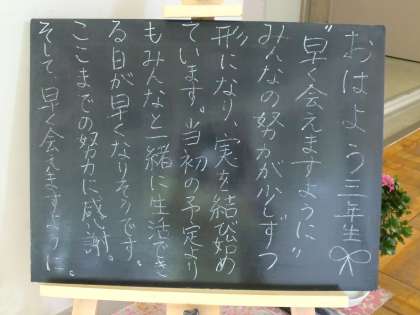 おはよう三年生
"早く会えますように"
みんなの努力が少しずつ
形になり、実を結び始め
ています。当初の予定より
もみんなと一緒に生活でき
る日が早くなりそうです。
ここまでの努力に感謝。
そして、早く会えますように。